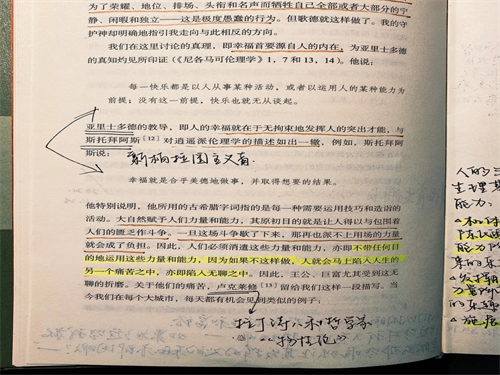 为了荣耀、地位、排场、头衔和名声而牺牲自己全部或者大部分的宁
静、闲暇和独立——这是极度愚蠢的行为。但歌德就这样做了。我的守
护神却明确地指引我走向与此相反的方向。
我们在这里讨论的真理,即幸福首要源自人的内在,为亚里士多德
的真知灼见所印证(《尼各马可伦理学》1,7和13,14)。他说:
每一快乐都是以人从事某种活动,或者以运用人的某种能力为
前提;没有这一前提,快乐也就无从谈起。
亚里士多德的教导,即人的幸福就在于无拘束地发挥人的突出才能,与
斯托拜阿斯[12]对逍遥派伦理学的描述如出一辙,例如,斯托拜阿
斯说:
新柏拉图主义者.
幸福就是合乎美德地做事,并取得想要的结果。
他特别说明,他所用的古希腊字词指的是每一种需要运用技巧和造诣的
活动。大自然赋予人们力量和能力,其原初目的就是让人得以与包围着
人们的匮乏作斗争。一旦这场斗争歇了下来,那再也派不上用场的力量
就会成了负担。因此,人们必须消遣这些力量和能力,亦即不带任何目
的地运用这些力量和能力。因为如果不这样做,人就会马上陷入人生的
另一个痛苦之中,亦即陷入无聊之中。因此,王公、巨富尤其受到这无
聊的折磨。关于他们的痛苦,卢克莱修[13]留给我们这样一段描写。当
今我们在每个大城市,每天都有机会见到类似的例子:
拉丁诗人和哲学家
《物性论》
能力: